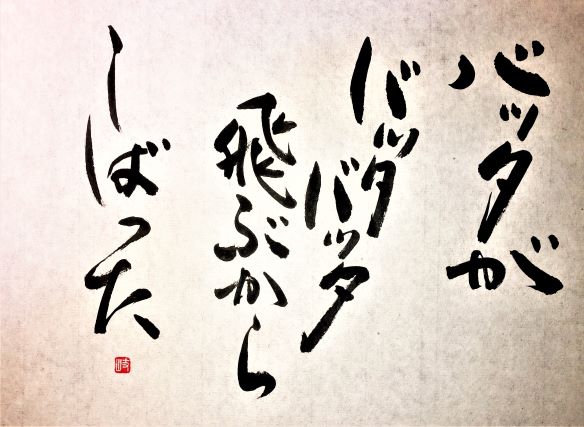 バッタが
バッタバッタ
飛ぶから
しばった